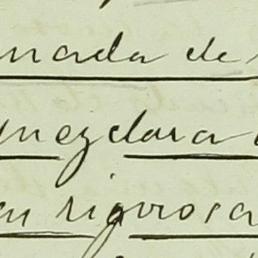 nada de
mezclara
en rigorosa